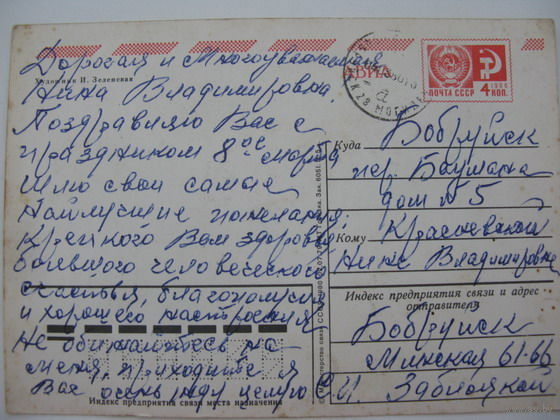 Дорогая и Многоуважаемая
Художник И. Зеленская
Нина Владимировна,
Поздравляю Вас с
праздником 8ое марта
Шлю свои самые
наилучшие пожелания:
Крепкого Вам здоровья
большого человеческого
счастья, благополучия
и хорошего настроения
Не обижайтесь на
меня, приходите я
Вас очень жду целую
Индекс предприятия связи места назначения
АВИА
ПОЧТА СССР
4 КОП.
1966
Куда Бобруйск
пер. Баумана
дом № 5
Кому
Нине Владимировне
Индекс предприятия связи и адрес
отправителя
Бобруйск
Минская 61-66